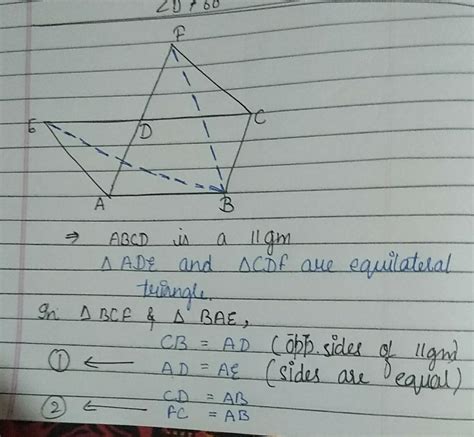 F
E
D
C
A
B
⇒ ABCD is a ||gm
△ADE and △CDF are equilateral
triangle.
In △BCF & △BAE,
CB = AD (opp. sides of ||gm)
① ← AD = AE (sides are equal)
CD = AB
② ← FC = AB